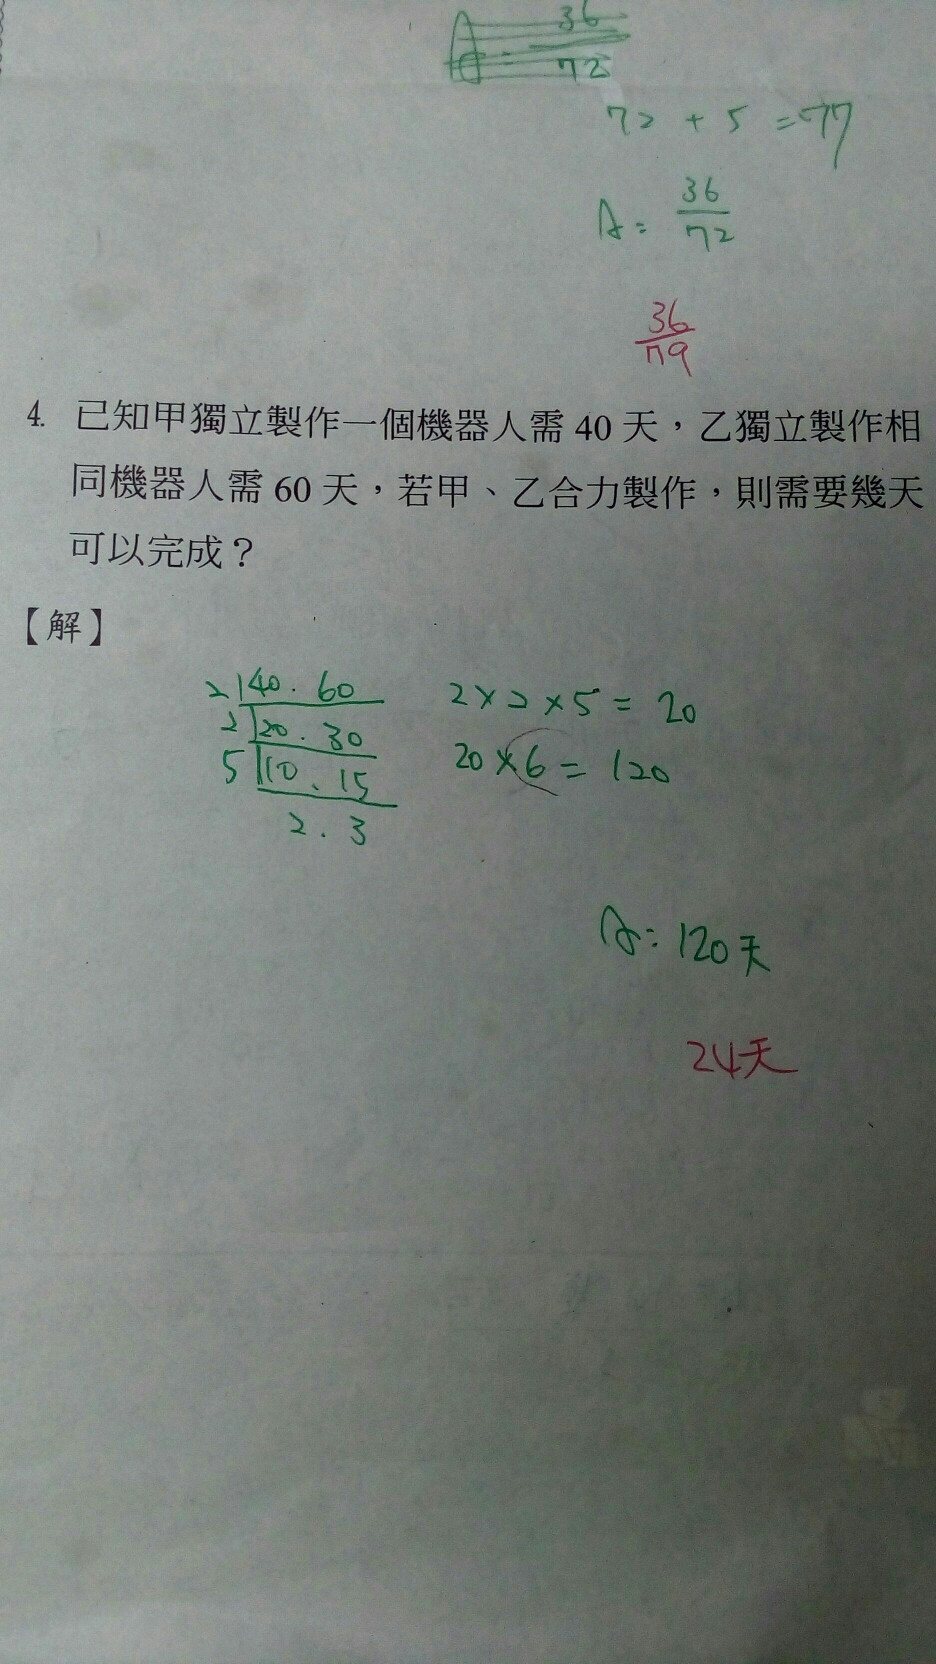 36
72
72 + 5 = 77
A: 36
72
36
79
4. 已知甲獨立製作一個機器人需 40 天，乙獨立製作相
同機器人需 60 天，若甲、乙合力製作，則需要幾天
可以完成？
【解】
2 40. 60
2 20. 30
5 10. 15
2. 3
2×2×5 = 20
20×6 = 120
A: 120天
24天